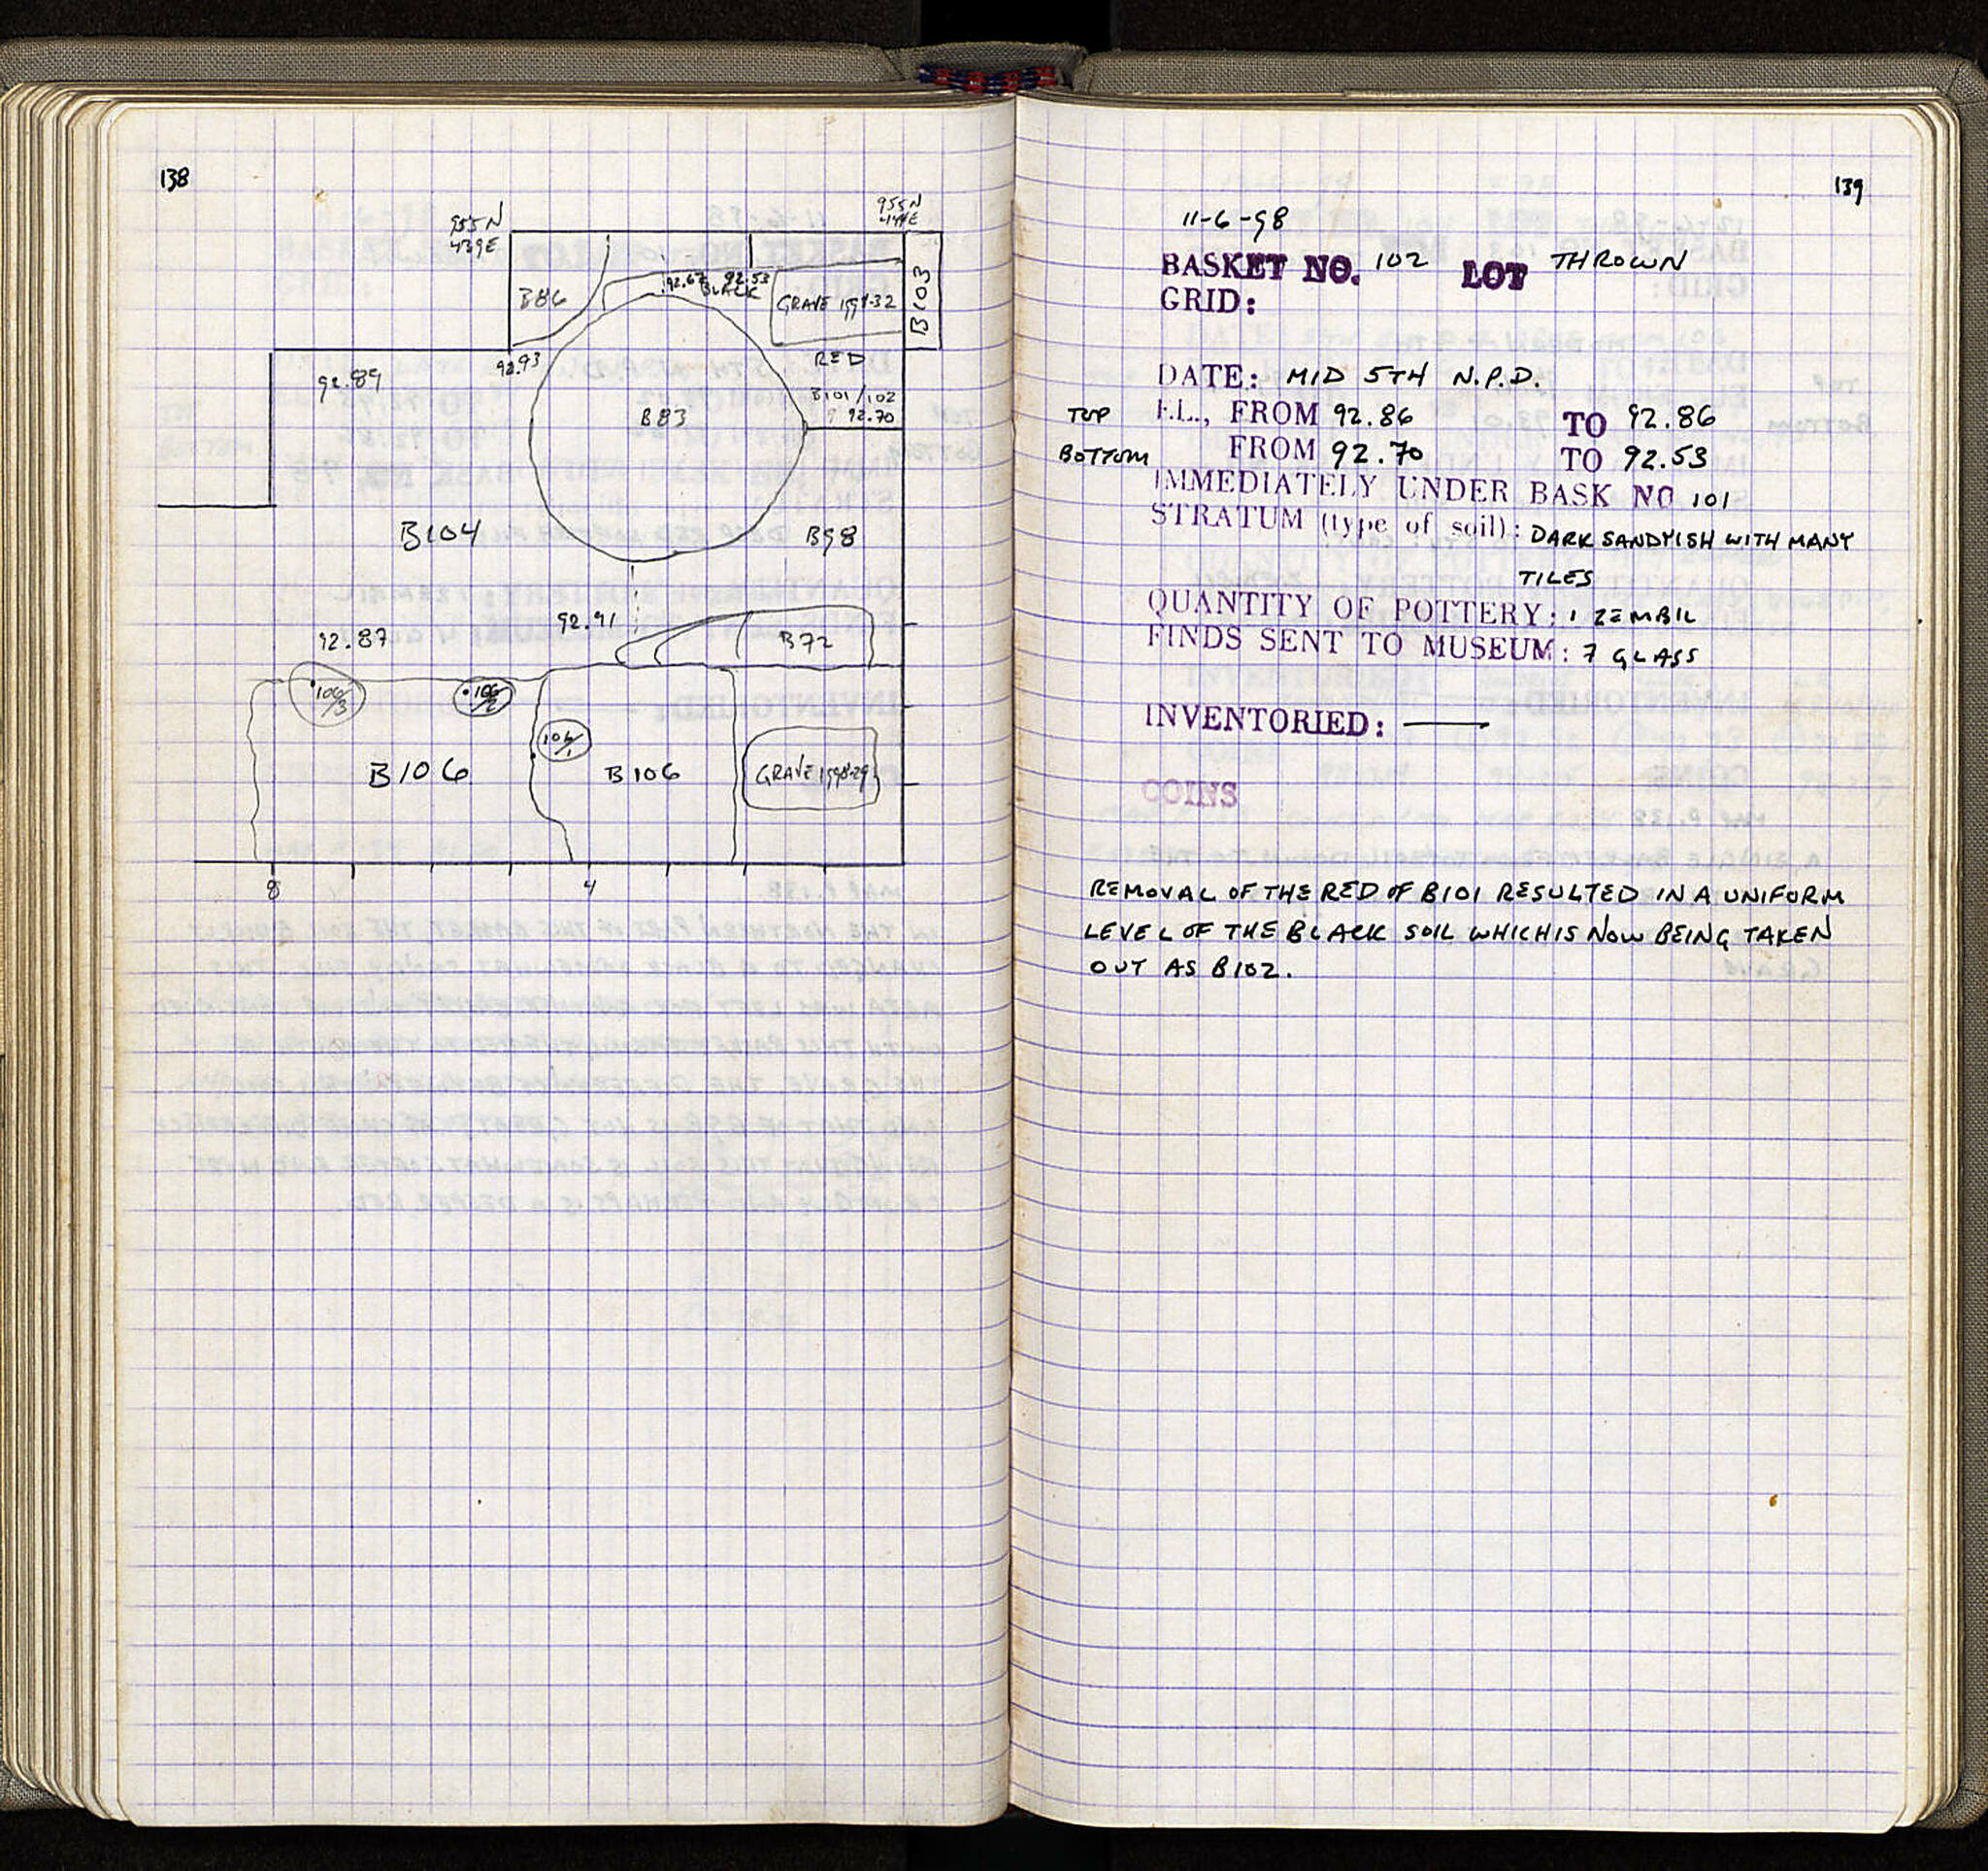 138
955N
439E
955N
444E
B86
92.67
92.53
BLACK
GRAVE 1998-32
B103
92.93
RED
92.89
B83
B101/102
92.70
B104
B98
92.91
92.87
B72
106/3
106/2
106/1
B106
B106
GRAVE 1998-29
8
4
139
11-6-98
BASKET NO. 102 LOT THROWN
GRID:
DATE: MID 5TH N.P.D.
TOP EL., FROM 92.86 TO 92.86
BOTTOM FROM 92.70 TO 92.53
IMMEDIATELY UNDER BASK NO 101
STRATUM (type of soil): DARK SANDYISH WITH MANY
TILES
QUANTITY OF POTTERY: 1 ZEMBIL
FINDS SENT TO MUSEUM: 7 GLASS
INVENTORIED: —
COINS
REMOVAL OF THE RED OF B101 RESULTED IN A UNIFORM
LEVEL OF THE BLACK SOIL WHICH IS NOW BEING TAKEN
OUT AS B102.